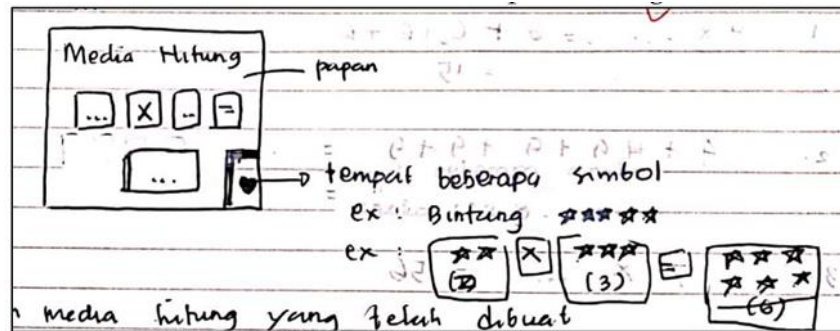 Media Hitung
papan
... X .. =
...
tempat beberapa simbol
ex : Bintang ☆☆☆☆☆
ex : ☆☆ X ☆☆☆ = ☆☆☆
☆☆☆
(2) (3) (6)
media hitung yang telah dibuat